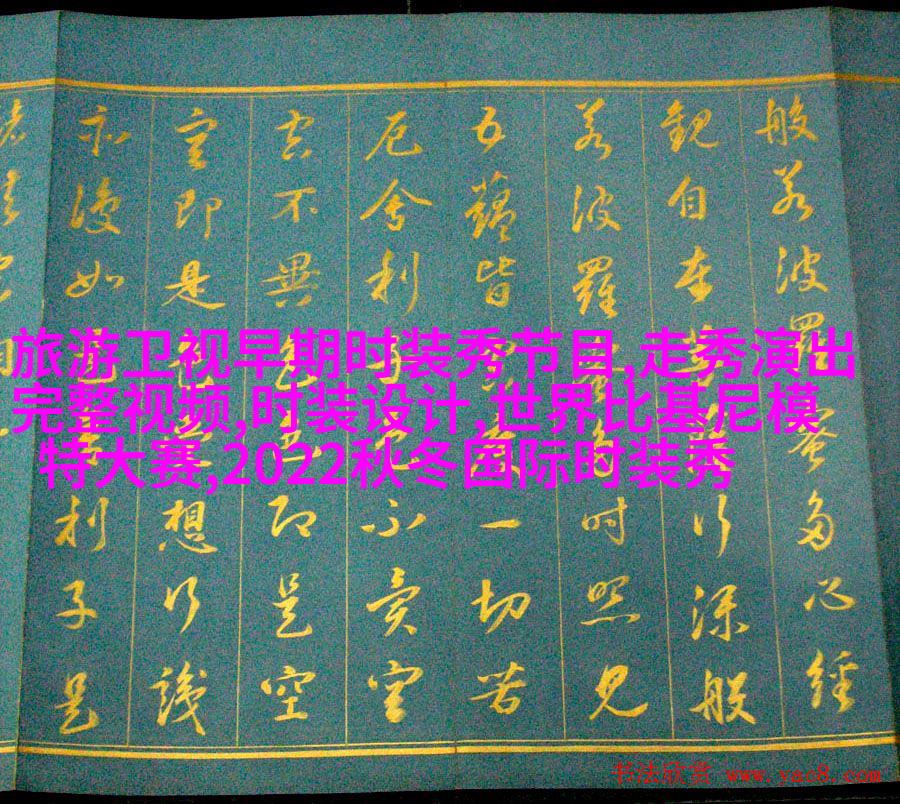 旅游卫视早期时装秀节目,走秀演出
完整视频,时装设计,世界比基尼模
特大赛,2022秋冬国际时装秀
般若波羅蜜多心經
觀自在菩行深般
若波羅時照見
五蘊皆一切苦
厄舍利子不異空
空不異即是空
空即是想行識
亦復如是利子是
书法欣赏 www.yac8.com